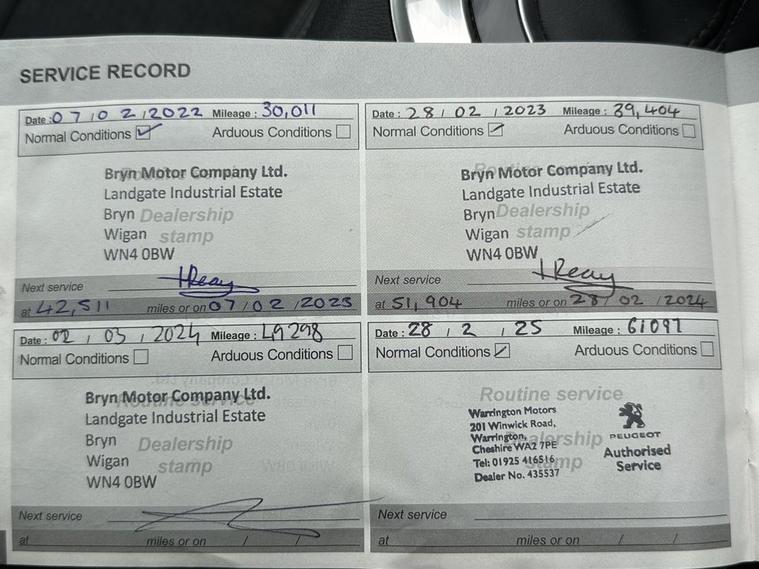 SERVICE RECORD
Date: 07/02/2022 Mileage: 30,011
Normal Conditions ☑ Arduous Conditions ☐
Bryn Motor Company Ltd.
Landgate Industrial Estate
Bryn Dealership
Wigan stamp
WN4 0BW
Next service
at 42,511 miles or on 07/02/2023
Date: 28/02/2023 Mileage: 39,404
Normal Conditions ☑ Arduous Conditions ☐
Bryn Motor Company Ltd.
Landgate Industrial Estate
Bryn Dealership
Wigan stamp
WN4 0BW
Next service
at 51,904 miles or on 28/02/2024
Date: 02/03/2024 Mileage: 49298
Normal Conditions ☐ Arduous Conditions ☐
Routine service
Bryn Motor Company Ltd.
Landgate Industrial Estate
Bryn Dealership
Wigan stamp
WN4 0BW
Next service
at miles or on / /
Date: 28/2/25 Mileage: 61097
Normal Conditions ☑ Arduous Conditions ☐
Routine service
Warrington Motors
201 Winwick Road,
Warrington,
Cheshire WA2 7PE
Tel: 01925 416516
Dealer No. 435537
Dealership
stamp
PEUGEOT
Authorised
Service
Next service
at miles or on / /